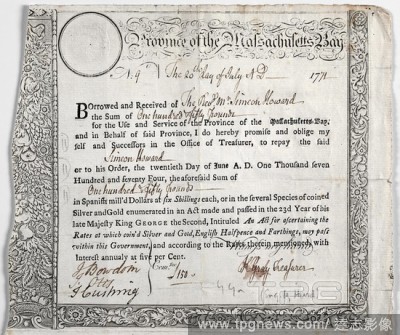 Province of the Massachusetts Bay
The 20th Day of July A.D. 1771
Borrowed and Received of The Revd. Mr Simeon Howard
the Sum of One hundred & fifty Pounds
for the Use and Service of the Province of the Massachusetts-Bay,
and in Behalf of said Province, I do hereby promise and oblige my
self and Successors in the Office of Treasurer, to repay the said
Simeon Howard
or to his Order, the twentieth Day of June A. D. One Thousand seven
Hundred and seventy Four, the aforesaid Sum of
One hundred & fifty Pounds
in Spanish mill'd Dollars at six Shillings each, or in the several Species of coined
Silver and Gold enumerated in an Act made and passed in the 23d Year of his
late Majesty King GEORGE the Second, Intituled An Act for ascertaining the
Rates at which coin'd Silver and Gold, English Halfpence and Farthings, may pass
within this Government, and according to the Rates therein mentioned, with
Interest annually at five per Cent.
J Bowdoin
Comtee
£150
H Gray Treasurer
T Cushing
www.tpgnews.com/
達志影像